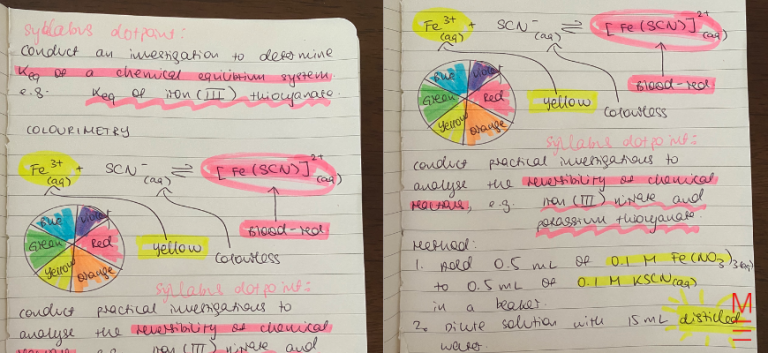 syllabus dotpoint:
conduct an investigation to determine
Keq of a chemical equilibrium system
e.g. Keq of iron (III) thiocyanate.
COLOURIMETRY
Fe³⁺(aq) + SCN⁻(aq) ⇌ [Fe(SCN)]²⁺(aq)
Blue Violet
Green Red
Yellow Orange
yellow
colourless
Blood-red
syllabus dotpoint:
conduct practical investigations to
analyse the reversibility of chemical
reactions, e.g. iron (III) nitrate and
Fe³⁺(aq) + SCN⁻(aq) ⇌ [Fe(SCN)]²⁺(aq)
Blue Violet
Green Red
Yellow Orange
yellow
colourless
Blood-red
syllabus dotpoint:
conduct practical investigations to
analyse the reversibility of chemical
reactions, e.g. iron (III) nitrate and
potassium thiocyanate.
Method:
1. Add 0.5 mL of 0.1 M Fe(NO₃)₃(aq)
to 0.5 mL of 0.1 M KSCN(aq)
in a beaker.
2. Dilute solution with 15 mL distilled
water
M